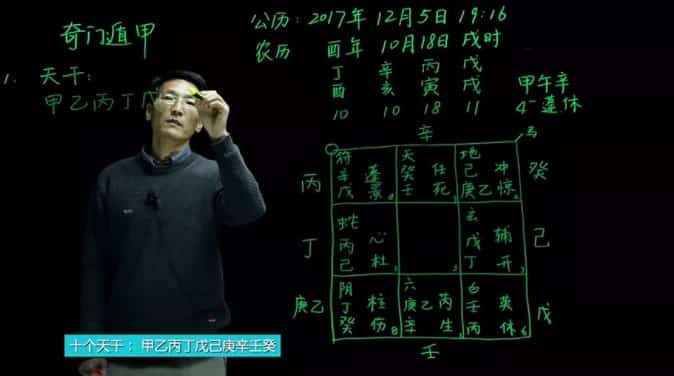 奇门遁甲
1. 天干:
甲乙丙丁戊
公历: 2017年 12月5日 19:16
农历 酉年 10月18日 戌时
丁 辛 丙 戊
酉 亥 寅 戌
10 10 18 11
甲午辛
4 蓬休
辛
马
丙
符
辛 蓬
戊 景
天
癸 任
壬 死
地
己 冲
庚乙 惊
癸
丁
蛇
丙 心
己 杜
玄
戊 辅
丁 开
己
庚乙
阴
丁 柱
癸 伤 8
六
庚乙 芮
辛 生
壬 英
丙 休 6
戊
壬
十个天干: 甲乙丙丁戊己庚辛壬癸